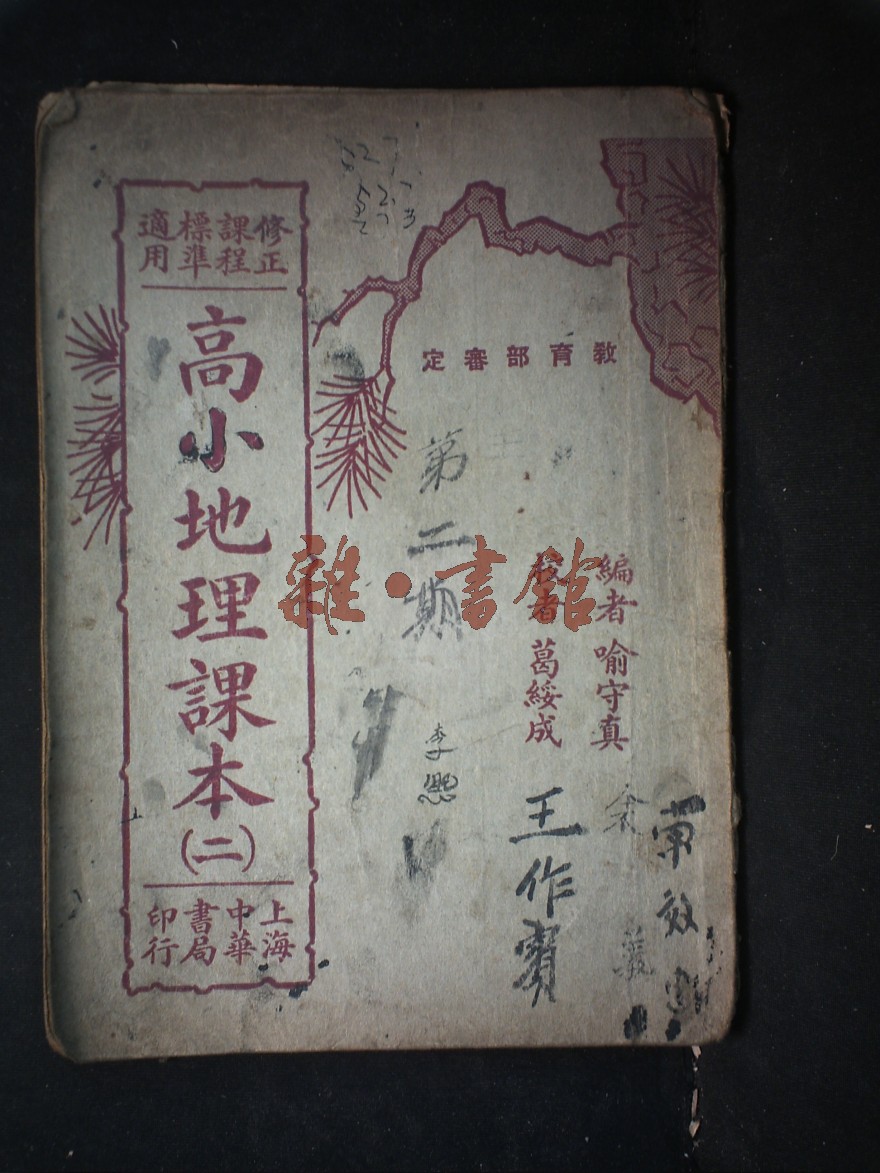 教育部審定
編者 喻守真
校者 葛綏成
修正課程標準適用
高小地理課本(二)
上海中華書局印行
第二期
王作賓
雜·書館